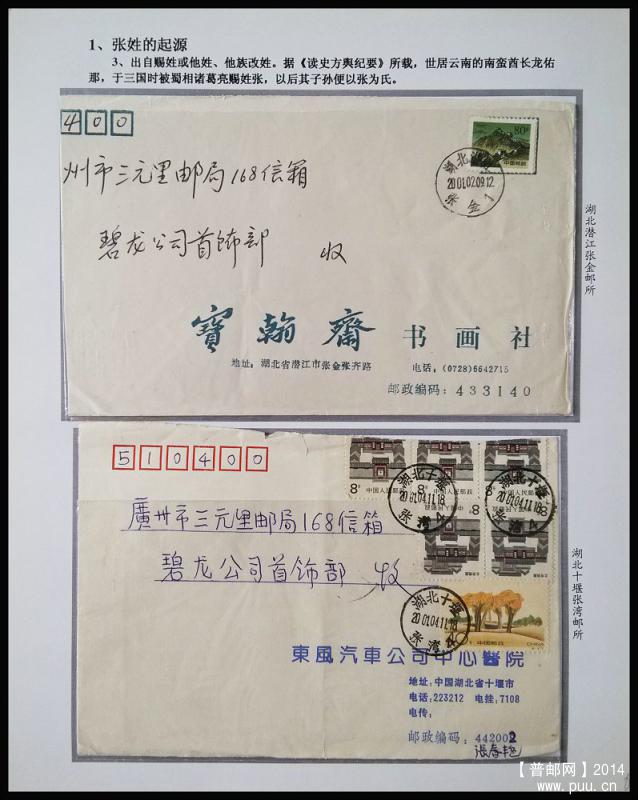 1、张姓的起源
3、出自赐姓或他姓、他族改姓。据《读史方舆纪要》所载，世居云南的南蛮酋长龙佑
那，于三国时被蜀相诸葛亮赐姓张，以后其子孙便以张为氏。
400
80分
中国邮政
湖北
2001.02.09.12
张金1
州市三元里邮局168信箱
碧龙公司首饰部 收
湖北潜江张金邮所
寳翰齋书画社
地址：湖北省潜江市张金张齐路 电话：(0728)6642715
邮政编码：433140
510400
8分
中国人民邮政
8分
中国人民邮政
湖北十堰
2001.04.11.18
张湾4
湖北十堰
2001.04.11.18
张湾4
廣州市三元里邮局168信箱
碧龙公司首饰部 收
湖北十堰张湾邮所
湖北十堰
2001.04.11.18
张湾4
中国邮政
東風汽車公司中心醫院
地址：中国湖北省十堰市
电话：223212 电挂：7108
电传：
邮政编码：442002
張春艳
【普邮网】2014
www.puu.cn